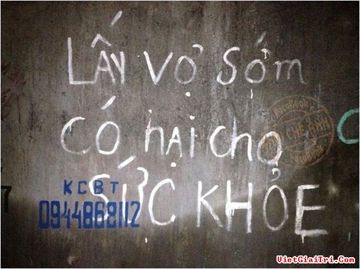 LẤY VỢ SỚM
CÓ HẠI CHO
SỨC KHỎE
KCBT
0944868112
VietGiaiTri.Com